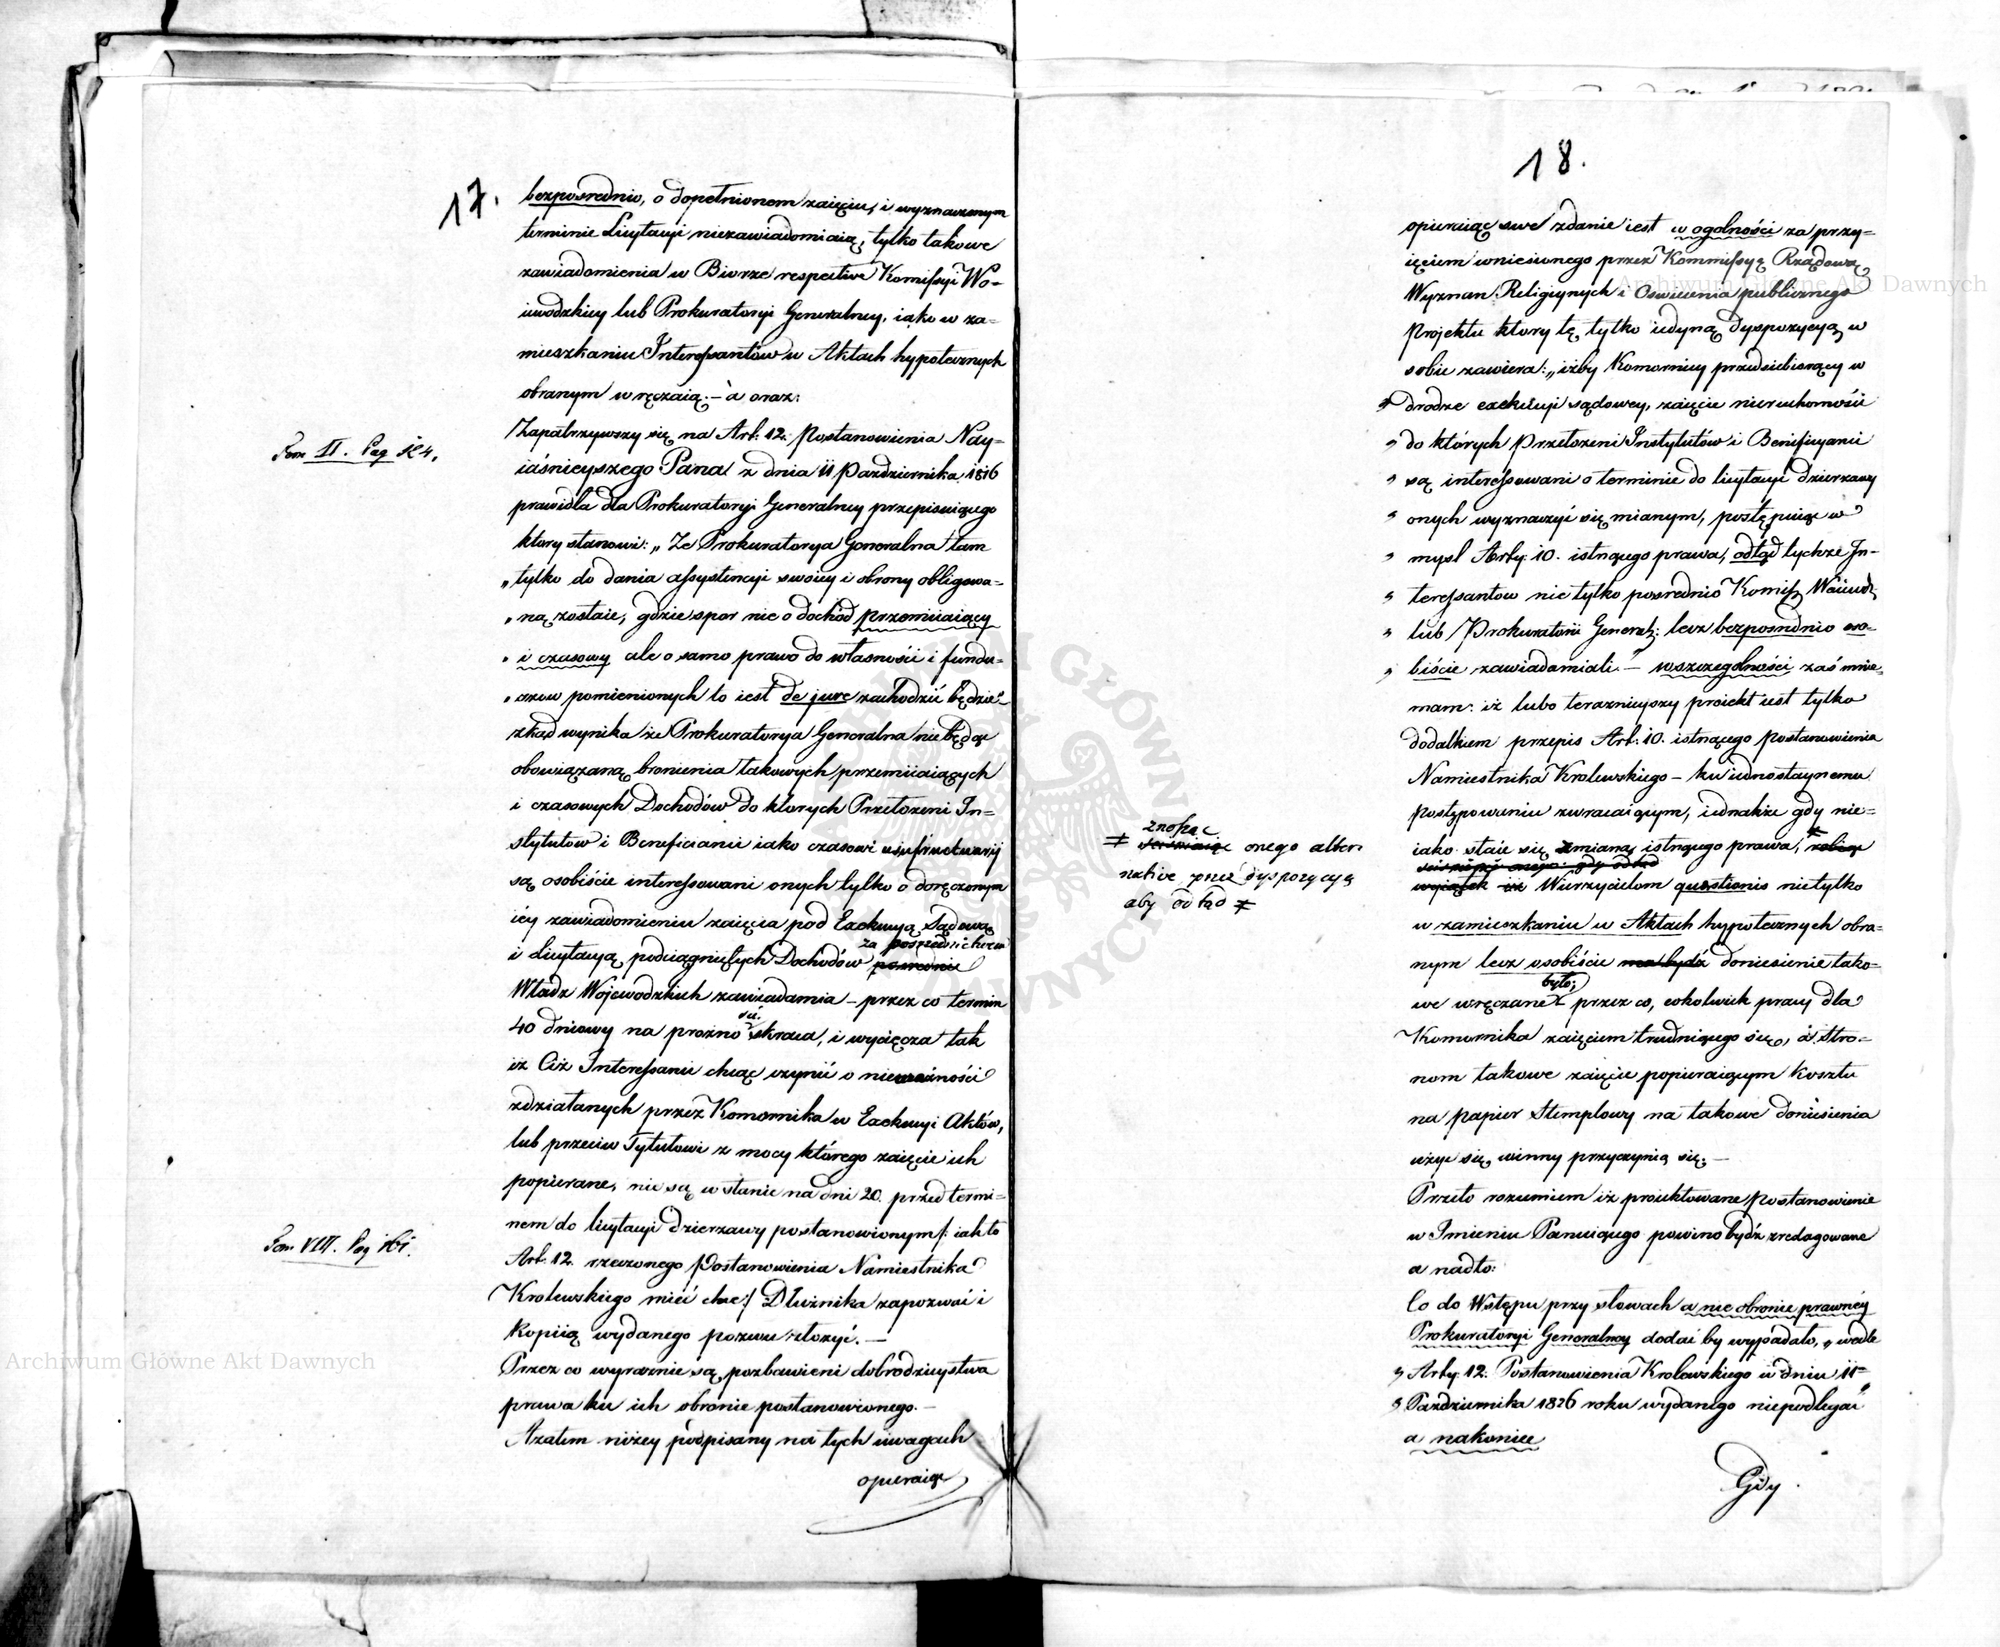 17.
bezposrednio, o dopełnionem zaięciu, i wyznaczonym
terminie Licytacyi niezawiadomiaią, tylko takowe
zawiadomienia w Biórze respective Komissyi Wo-
iewodzkiey lub Prokuratoryi Generalney, iako w za-
mieszkaniu Interessantów w Aktach hypotecznych
obranym wręczaią. – à oraz:
Zapatrzywszy się na Art: 12. Postanowienia Nay-
iaśnieyszego Pana z dnia 11 Pazdziernika 1816
prawidła dla Prokuratoryi Generalney przepisuiącego
ktory stanowi: „Ze Prokuratorya Generalna tam
„tylko do dania assystencyi swoiey i obrony obligowa-
„ną zostaie, gdzie spor nie o dochód przemiiaiący
„i czasowy ale o samo prawo do własności i fundu-
„szow pomienionych to iest de jure zachodzić będzie"
zkąd wynika że Prokuratorya Generalna nie będąc
obowiązaną bronienia takowych przemiiaiących
i czasowych Dochodów do ktorych Przełożeni In-
stytutow i Beneficianci iako czasowi usufructuarij
są osobiście interessowani onych tylko o doręczonym
iéy zawiadomieniu zaięcia pod Exekucyą Sądową
za posrednictwem
i licytacyą podciągniętych Dochodów posrednie
Władz Wojewodzkich zawiadamia – przez co termin
się
40 dniowy na prozno skraca, i wycięcza tak
iż Ciż Interessanci chcąc czynić o nieważności
zdziałanych przez Komornika w Exekucyi Aktów,
lub przeciw Tytułowi z mocy którego zaięcie ich
popierane, nie są w stanie na dni 20. przed termi-
nem do licytacyi dzierzawy postanowionym /: iak to
Art. 12. rzeczonego Postanowienia Namiestnika
Krolewskiego mieć chce :/ Dłużnika zapozwać i
Kopiią wydanego pozwu złożyć. –
Przez co wyraznie są pozbawieni dobrodzieystwa
prawa ku ich obronie postanowionego. –
Azatem niżey podpisany na tych uwagach
opieraiąc
Tom II. Pag 124.
Tom VIII. Pag 161.
18.
opieraiąc swe zdanie iest w ogolności za przy-
ięciem wniesionego przez Kommissyą Rządową
Wyznan Religiynych i Oswiecenia publicznego
Projektu ktory tę tylko iedyną dyspozycyą w
sobie zawiera: „iżby Komornicy przedsiebiorący w
„drodze exekucyi sądowey, zaięcie nieruchomości
„do których Przełożeni Instytutów i Beneficyanci
„są interessowani o terminie do licytacyi dzierzawy
„onych wyznaczyć się mianym, postępuiąc w
„mysl Arty: 10. istnącego prawa, odtąd tychże In-
„teressantow nie tylko posrednio Komiss Woiewodz
„lub Prokuratorii General: lecz bezposrednio oso-
„biście zawiadamiali. – w szczegolności zaś mnie-
mam: iż lubo terazniejszy proiekt iest tylko
dodatkiem przepis Art. 10. istnącego Postanowienia
Namiestnika Krolewskiego – ku iednostaynemu
postępowaniu zwracaiącym, iednakże gdy nie-
iako staie się zmianą istnącego prawa, robiąc
wyiątek iż Wierzycielom questionis nietylko
w zamieszkaniu w Aktach hypotecznych obra-
nym lecz osobiście ma bydź doniesienie tako-
było,
we wręczane przez co, cokolwiek pracy dla
Komornika zaięciem trudniącego się, à Stro-
nom takowe zaięcie popieraiącym kosztu
na papier Stemplowy na takowe doniesienia
użyc się winny przyczynią się. –
Przeto rozumiem iż proiektowane Postanowienie
w Imieniu Panuiącego powino bydź zredagowane
a nadto:
Co do Wstępu przy słowach a nie obronie prawnéy
Prokuratoryi Generalney dodać by wypadało, „wedle
„Arty. 12. Postanowienia Krolewskiego w dniu 11
„Pazdziernika 1816 roku wydanego niepodlegać"
a nakoniec
Gdy
znosząc
onego alter
native prze dyspozycyą
aby odtąd
Archiwum Główne Akt Dawnych
Archiwum Główne Akt Dawnych